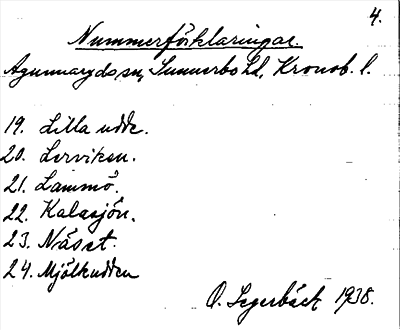 4.
Nummerförklaringar.
Agunnaryds sn, Sunnerbo hd, Kronob. l.
19. Lilla udde.
20. Lerviken.
21. Lammö.
22. Kalasjön.
23. Näset.
24. Mjölkudden
O. Segerbäck 1938.